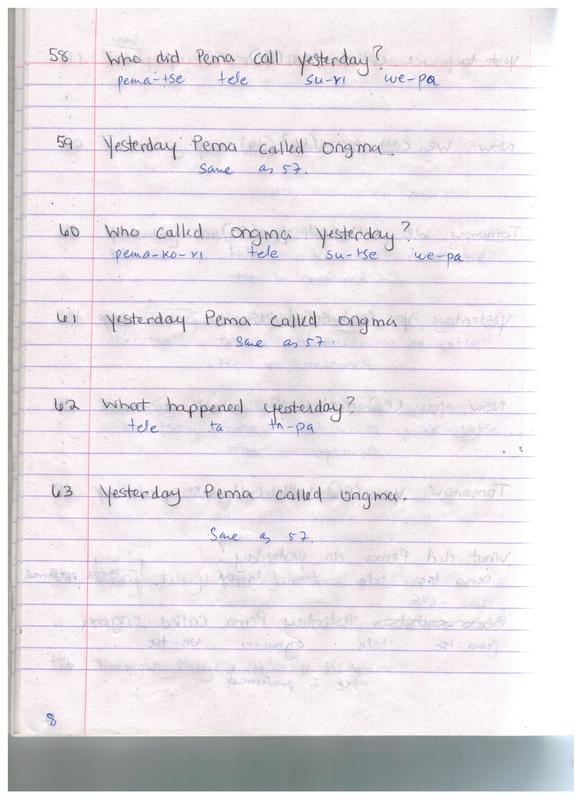 58 Who did Pema call yesterday?
pema-tse tele su-ri we-pa
59 Yesterday Pema called Ongma.
Same as 57.
60 Who called ongma yesterday?
pema-ko-ri tele su-tse we-pa
61 Yesterday Pema called ongma
Same as 57.
62 What happened yesterday?
tele ta th-pa
63 Yesterday Pema called ongma.
Same as 57.
8